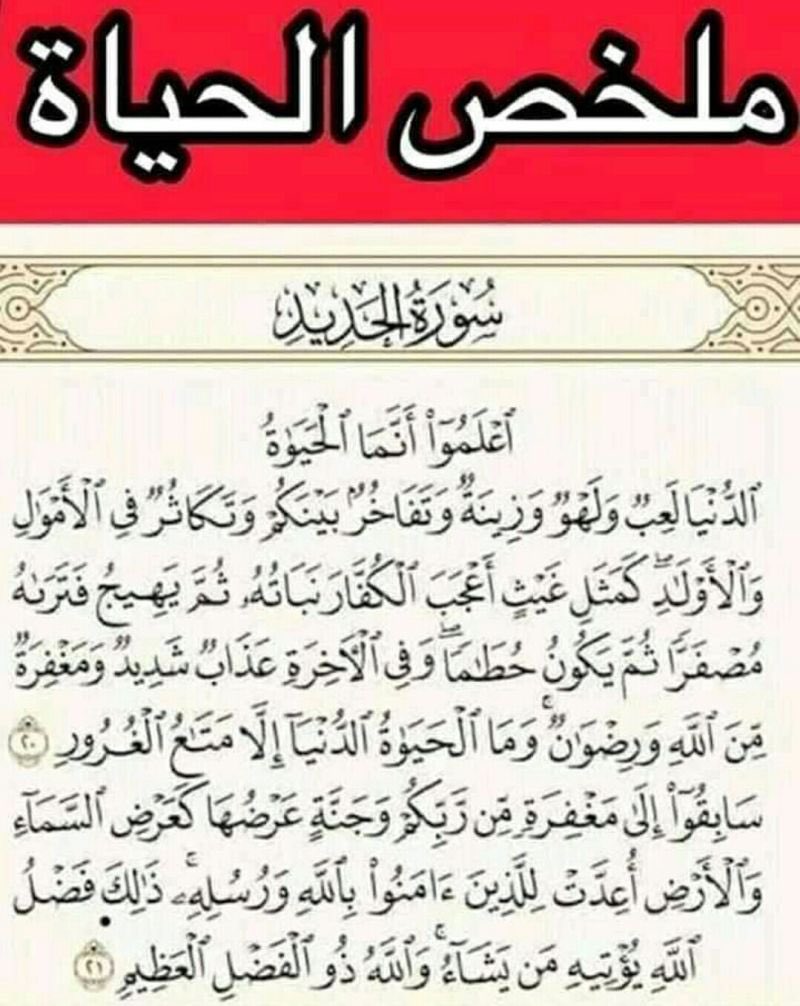 ملخص الحياة
سُورَةُ الحَدِيدِ
ٱعْلَمُوٓا۟ أَنَّمَا ٱلْحَيَوٰةُ
ٱلدُّنْيَا لَعِبٌ وَلَهْوٌ وَزِينَةٌ وَتَفَاخُرٌۢ بَيْنَكُمْ وَتَكَاثُرٌ فِى ٱلْأَمْوَٰلِ
وَٱلْأَوْلَٰدِ ۖ كَمَثَلِ غَيْثٍ أَعْجَبَ ٱلْكُفَّارَ نَبَاتُهُۥ ثُمَّ يَهِيجُ فَتَرَىٰهُ
مُصْفَرًّا ثُمَّ يَكُونُ حُطَٰمًا ۖ وَفِى ٱلْـَٔاخِرَةِ عَذَابٌ شَدِيدٌ وَمَغْفِرَةٌ
مِّنَ ٱللَّهِ وَرِضْوَٰنٌ ۚ وَمَا ٱلْحَيَوٰةُ ٱلدُّنْيَآ إِلَّا مَتَٰعُ ٱلْغُرُورِ ٢٠
سَابِقُوٓا۟ إِلَىٰ مَغْفِرَةٍ مِّن رَّبِّكُمْ وَجَنَّةٍ عَرْضُهَا كَعَرْضِ ٱلسَّمَآءِ
وَٱلْأَرْضِ أُعِدَّتْ لِلَّذِينَ ءَامَنُوا۟ بِٱللَّهِ وَرُسُلِهِۦ ۚ ذَٰلِكَ فَضْلُ
ٱللَّهِ يُؤْتِيهِ مَن يَشَآءُ ۚ وَٱللَّهُ ذُو ٱلْفَضْلِ ٱلْعَظِيمِ ٢١